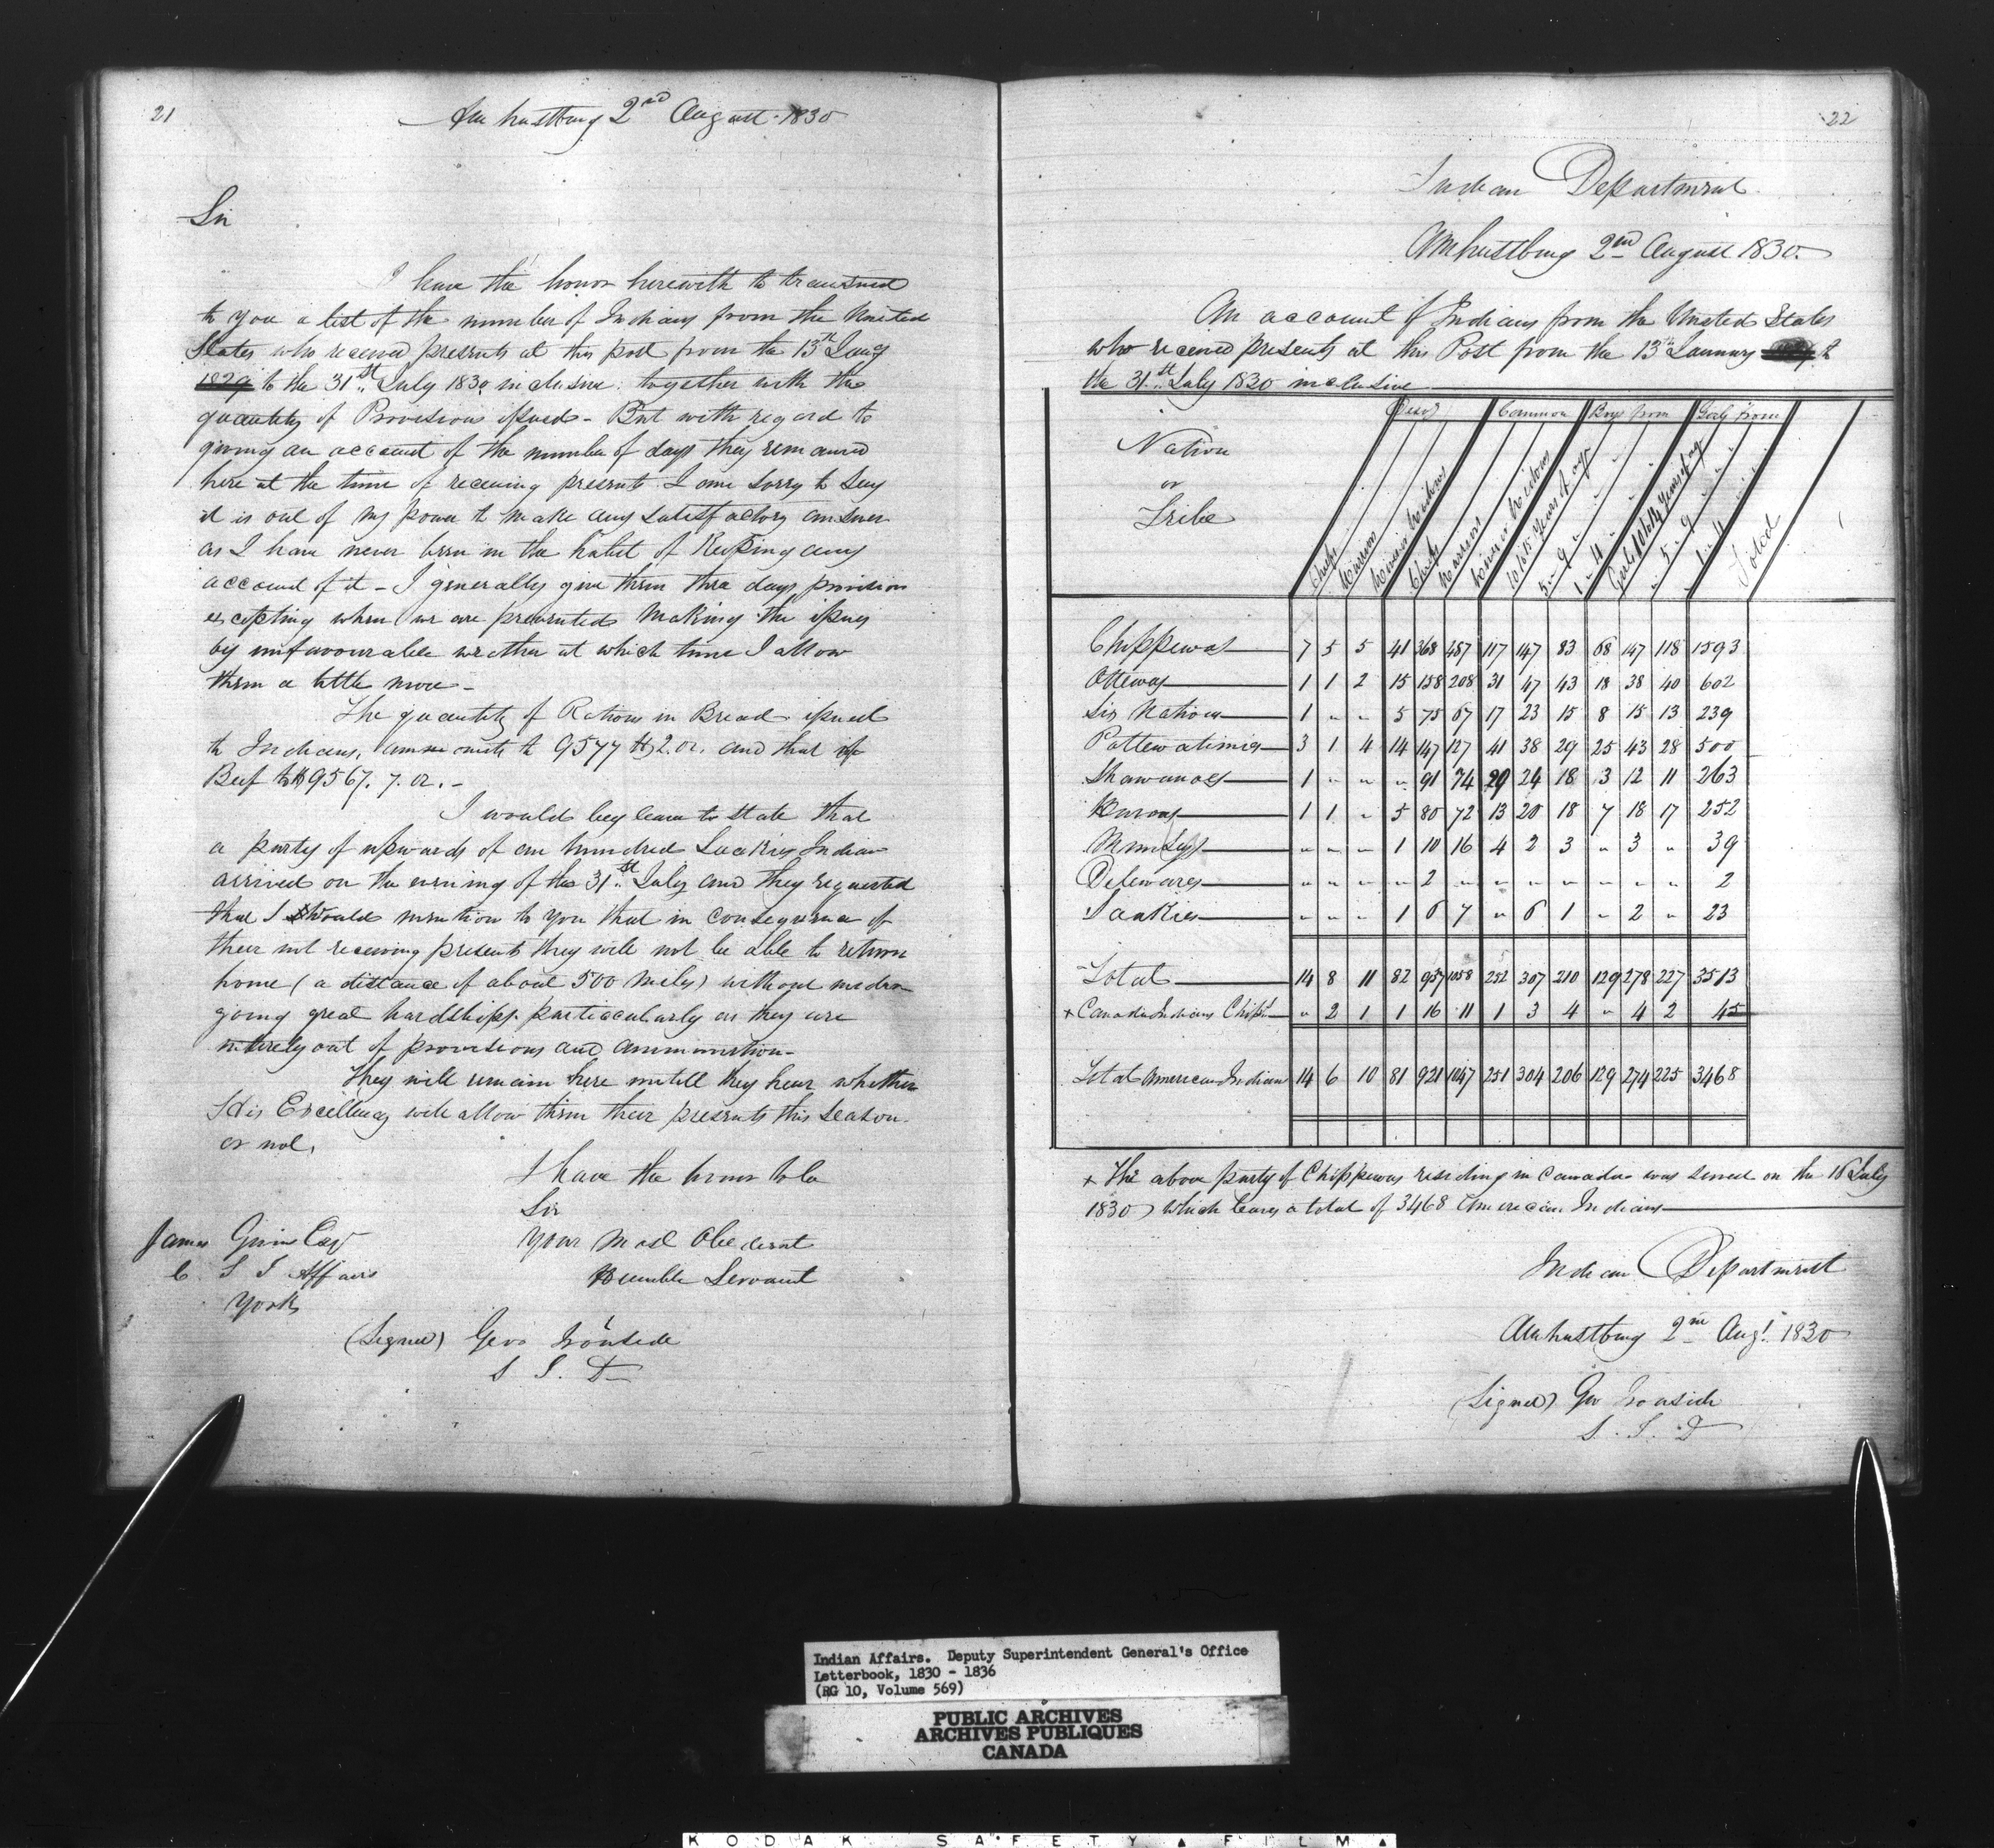 21
Amherstburg 2nd August 1830
Sir
I have the honor herewith to transmit
to you a list of the number of Indians from the United
States who received presents at this post from the 13th Jany
1829 to the 31st July 1830 inclusive. together with the
quantity of Provisions issued - But with regard to
giving an account of the number of days they remained
here at the time of receiving presents I am sorry to say
it is out of my power to make any satisfactory answer
as I have never been in the habit of Keeping any
account of it - I generally give them three days provision
excepting when we are prevented making the issues
by unfavourable weather at which time I allow
them a little more -
The quantity of Rations in Bread issued
to Indians, ammounts to 9577 lb 2. oz. and that of
Beef to lb 9567. 7. oz. -
I would beg leave to State that
a party of upwards of one hundred Saakies Indians
arrived on the evening of the 31st July and they requested
that I would mention to you that in consequence of
their not receiving presents they will not be able to return
home (a distance of about 500 miles) without under-
going great hardships. particularly as they are
entirely out of provisions and ammunition -
They will remain here untill they hear whether
His Excellency will allow them their presents this season
or not.
I have the honor to be
Sir
Your Most Obedient
Humble Servant
James Givins Esqr
C. S I Affairs
York
(Signed) Geo Ironside
S. I. D
22
Indian Department
Amherstburg 2nd August 1830.
An account of Indians from the United States
who received presents at this Post from the 13th January to
the 31st July 1830 inclusive
Nation
or
Tribe
Common Boys from Girls from
Chiefs Warriors Chiefs Warriors Total
Chippewas 7 5 5 41 368 487 117 147 83 68 147 118 1593
Ottewas 1 1 2 15 158 208 31 47 43 18 38 40 602
Six Nations 1 " " 5 75 67 17 23 15 8 15 13 239
Pottewatimies 3 1 4 14 147 127 41 38 29 25 43 28 500
Shawanoes 1 " " " 91 74 29 24 18 3 12 11 263
Hurons 1 1 " 5 80 72 13 20 18 7 18 17 252
Munseys " " " 1 10 16 4 2 3 " 3 " 39
Delewares " " " " 2 " " " " " " " 2
Saakies " " " 1 6 7 " 6 1 " 2 " 23
Total 14 8 11 82 937 1058 252 307 210 129 278 227 3513
+ Canada Indians Chipps " 2 1 1 16 11 1 3 4 " 4 2 45
Total American Indians 14 6 10 81 921 1047 251 304 206 129 274 225 3468
+ The above party of Chippewas residing in Canada was served on the 16 July
1830) which leaves a total of 3468 American Indians
Indian Department
Amherstburg 2nd Augt. 1830
(Signed) Geo Ironside
S. I. D
Indian Affairs. Deputy Superintendent General's Office
Letterbook, 1830 - 1836
(RG 10, Volume 569)
PUBLIC ARCHIVES
ARCHIVES PUBLIQUES
CANADA
KODAK SAFETY FILM